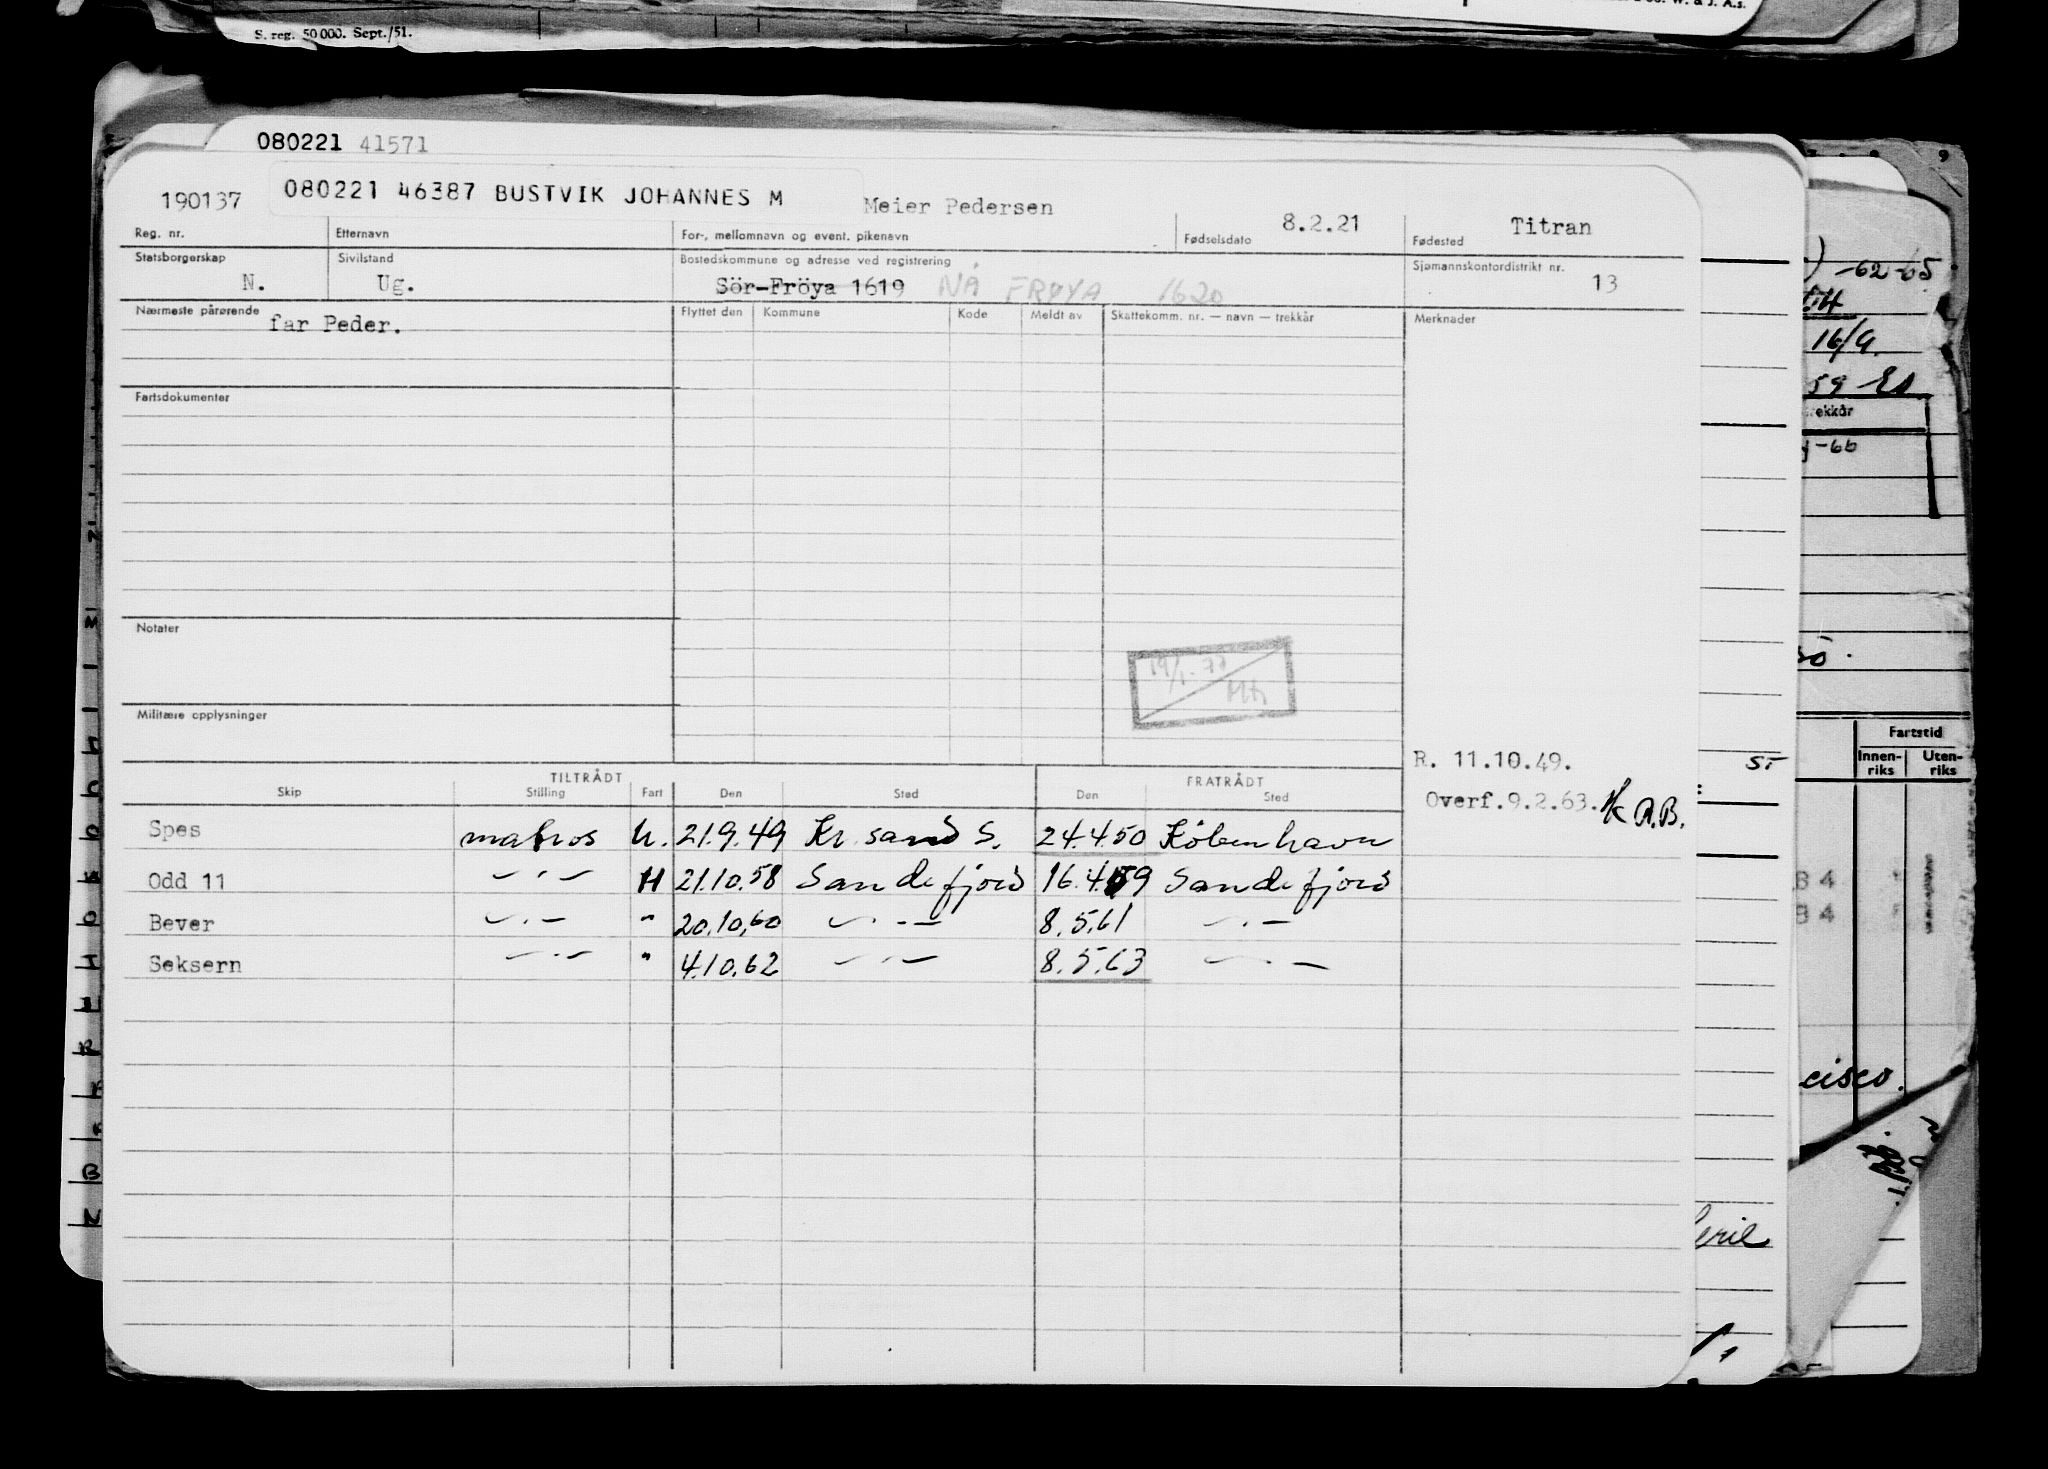 S. reg. 50 000. Sept./51.
W. & J. A.s.
080221 41571
190137 080221 46387 BUSTVIK JOHANNES M Meier Pedersen 8.2.21 Titran
Reg. nr. Etternavn For-, mellomnavn og event. pikenavn Fødselsdato Fødested
Statsborgerskap Sivilstand Bostedskommune og adresse ved registrering Sjømannskontordistrikt nr.
N. Ug. Sör-Fröya 1619 NÅ FRØYA 1620 13
Nærmeste pårørende Flyttet den Kommune Kode Meldt av Skattekomm. nr. — navn — trekkår Merknader
far Peder.
Fartsdokumenter
Notater
19/1-77
Militære opplysninger
R. 11.10.49.
TILTRÅDT FRATRÅDT
Skip Stilling Fart Den Sted Den Sted
Overf.9.2.63. R.B.
Spes matros U. 21.9.49 Kr. sand S. 24.4.50 København
Odd 11 — " — H 21.10.58 Sandefjord 16.4.59 Sandefjord
Bever — " — " 20.10.60 — " — 8.5.61 — " —
Seksern — " — " 4.10.62 — " — 8.5.63 — " —
-62-65
16/9.
59
ekkår
-66
ST
Fartstid
Innen-riks Uten-riks
84
84
cisco.